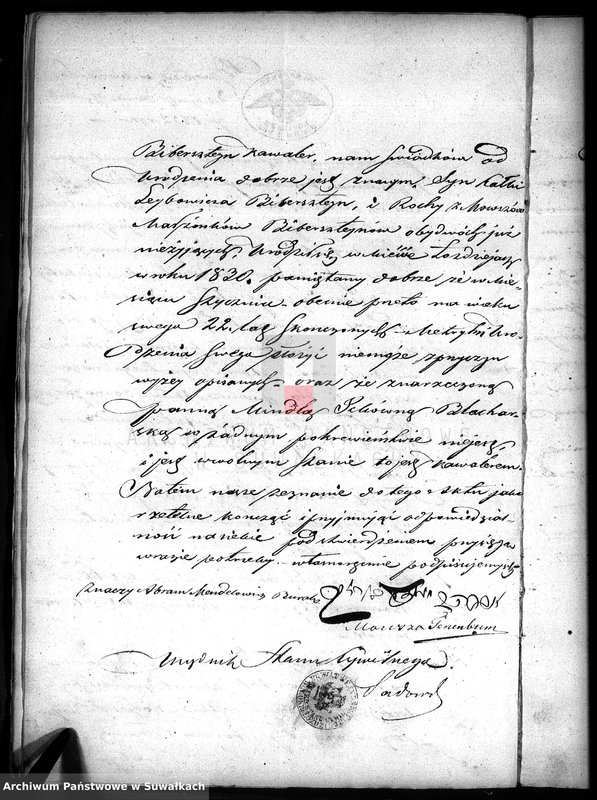 Bibersztyn Kawaler, nam świadków od
Urodzenia dobrze jest znaym, Syn Kałki
Leybowicza Bibersztyn, i Rochy z Mowszów
Małżonków Bibersztejnów obydwóch już
nieżyjących, Urodził się w mieście Łozdziejach
w roku 1830. pamiętamy dobrze że w Mie-
siącu Styczniu obecnie przeto ma wieku
swego 22. lat skończonych Metryki Uro-
dzenia swego złożyć niemoże z przyczyn
wyżey opisanych oraz że z narzeczoną
panną Mindlą Blachar-
ską w żadnym pokrewieństwie niejest,
i jest w wolnym Stanie to jest kawalerem.
Zatem nasze zeznanie do tego Aktu jako
rzetelne kończąc i przyjmując odpowiedzial-
ność na siebie pod stwierdzeniem przysięgą
w razie potrzeby własnoręcznie podpisujemy
Znaczy Abram Mendelowicz
Mowsza Tenenbum
Urzędnik Stanu Cywilnego
Sadowski
Archiwum Państwowe w Suwałkach